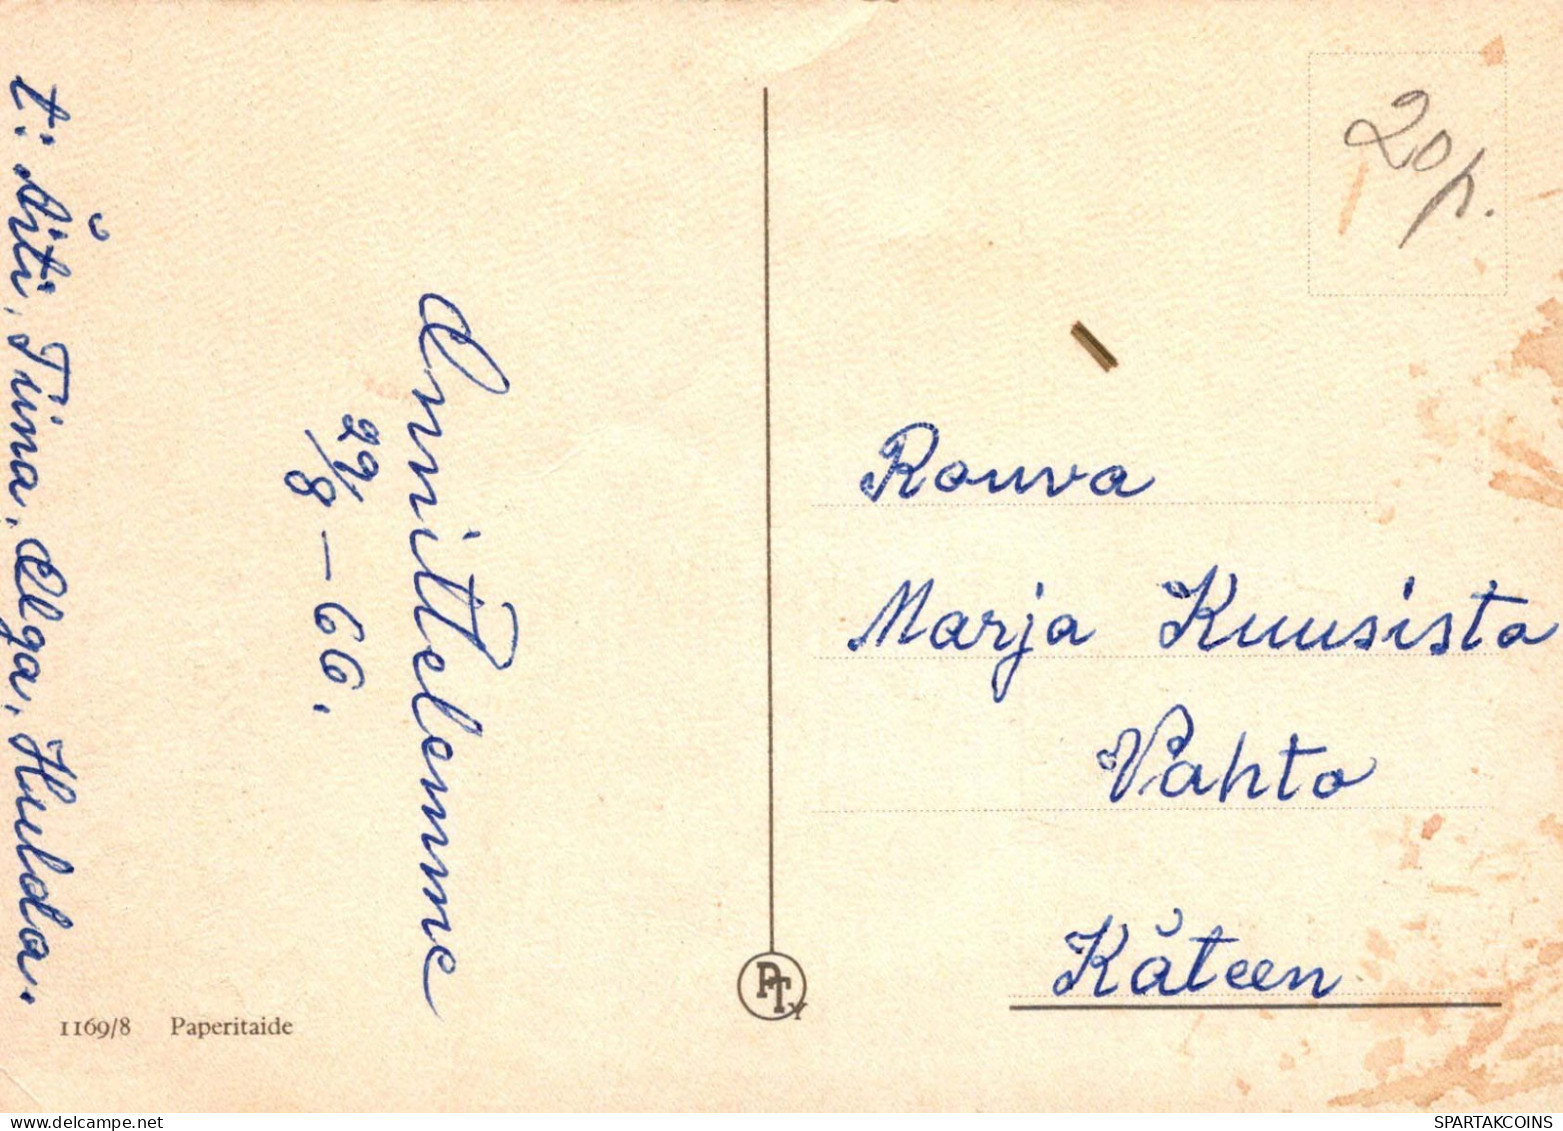 Onnittelemme
29/8 – 66.
t: Äiti, Tiina, Olga, Hulda.
1169/8 Paperitaide
PTY
20 p.
Rouva
Marja Kuusisto
Vahto
Käteen
SPARTAKCOINS